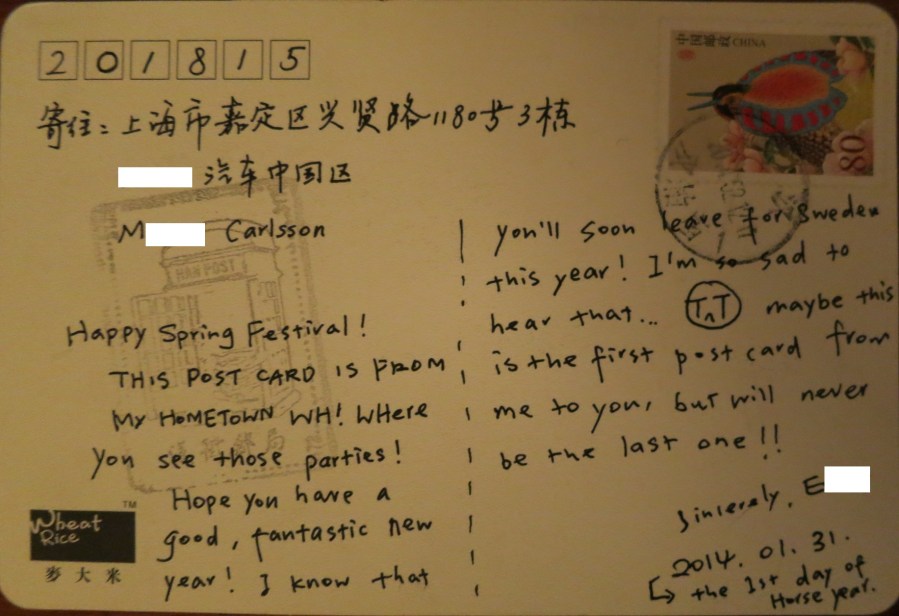 201815
中国邮政 CHINA
80
寄往:上海市嘉定区兴贤路1180号3栋
汽车中国区
M Carlsson
HAN POST
邮局
Happy Spring Festival!
THIS POST CARD IS FROM
MY HOMETOWN WH! WHERE
you see those parties!
Hope you have a
good, fantastic new
year! I know that
you'll soon leave for Sweden
this year! I'm so sad to
hear that... TnT maybe this
is the first post card from
me to you, but will never
be the last one!!
Sincerely, E
2014. 01. 31.
↳ the 1st day of
Horse year.
Wheat
Rice
TM
麥大米